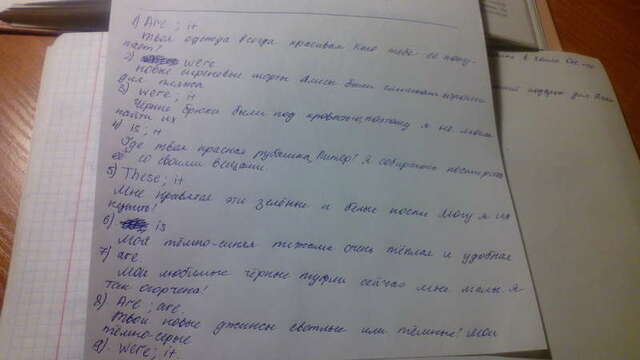 1) Are ; it
Твоя одежда всегда красивая Кто тебе её поку-
пает?
2) were
Новые сиреневые шорты Алисы были слишком
для пляжа
3) were ; it
Чёрные брюки были под кроватью, поэтому я не могла
найти их
4) is ; it
Где твоя красная рубашка, Питер! Я собираюсь постирать
её со своими вещами.
5) These ; it
Мне нравятся эти зелёные и белые носки Могу я их
купить!
6) is
Моя тёмно-синяя пижама очень тёплая и удобная
7) are
Мои любимые чёрные туфли сейчас мне малы Я
так огорчена!
8) Are ; are
Твои новые джинсы светлые или тёмные! Мои
тёмно-серые
9) were ; it
подарок для